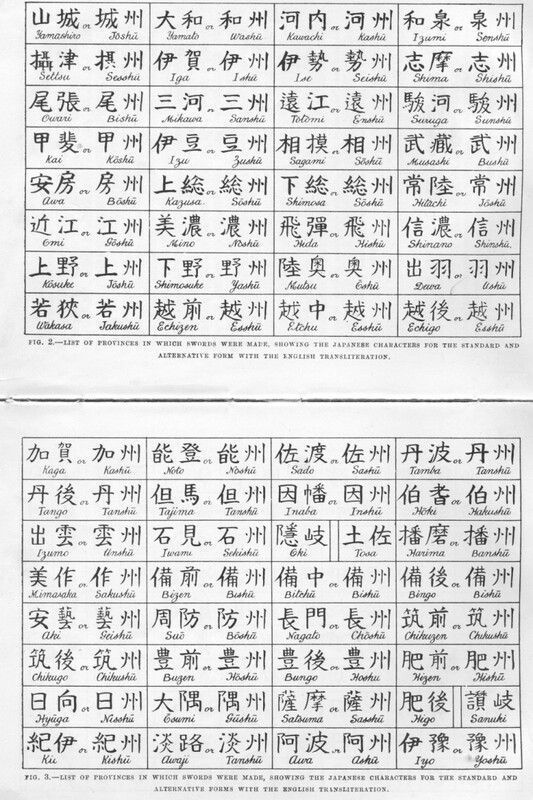 山城 or 城州 大和 or 和州 河内 or 河州 和泉 or 泉州
Yamashiro Jōshū Yamato Washū Kawachi Kashū Izumi Senshū
攝津 or 摂州 伊賀 or 伊州 伊勢 or 勢州 志摩 or 志州
Settsu Sesshū Iga Ishū Ise Seishū Shima Shishū
尾張 or 尾州 三河 or 三州 遠江 or 遠州 駿河 or 駿州
Owari Bishū Mikawa Sanshū Tōtōmi Enshū Suruga Sunshū
甲斐 or 甲州 伊豆 or 豆州 相摸 or 相州 武藏 or 武州
Kai Kōshū Izu Zushū Sagami Sōshū Musashi Bushū
安房 or 房州 上総 or 総州 下総 or 総州 常陸 or 常州
Awa Bōshū Kazusa Sōshū Shimosa Sōshū Hitachi Jōshū
近江 or 江州 美濃 or 濃州 飛彈 or 飛州 信濃 or 信州
Omi Gōshū Mino Nōshū Hida Hishū Shinano Shinshū
上野 or 上州 下野 or 野州 陸奥 or 奥州 出羽 or 羽州
Kōsuke Jōshū Shimosuke Yashū Mutsu Oshū Dewa Ushū
若狹 or 若州 越前 or 越州 越中 or 越州 越後 or 越州
Wakasa Jakushū Echizen Esshū Etchu Esshū Echigo Esshū
FIG. 2.—LIST OF PROVINCES IN WHICH SWORDS WERE MADE, SHOWING THE JAPANESE CHARACTERS FOR THE STANDARD AND
ALTERNATIVE FORM WITH THE ENGLISH TRANSLITERATION.
加賀 or 加州 能登 or 能州 佐渡 or 佐州 丹波 or 丹州
Kaga Kashū Noto Noshū Sado Sashū Tamba Tanshū
丹後 or 丹州 但馬 or 但州 因幡 or 因州 伯耆 or 伯州
Tango Tanshū Tajima Tanshū Inaba Inshū Hōki Hakushū
出雲 or 雲州 石見 or 石州 隱岐 土佐 播磨 or 播州
Izumo Unshū Iwami Sekishū Oki Tosa Harima Banshū
美作 or 作州 備前 or 備州 備中 or 備州 備後 or 備州
Mimasaka Sakushū Bizen Bishū Bitchū Bishū Bingo Bishū
安藝 or 藝州 周防 or 防州 長門 or 長州 筑前 or 筑州
Aki Geishū Suō Bōshū Nagato Chōshū Chikuzen Chikushū
筑後 or 筑州 豊前 or 豊州 豊後 or 豊州 肥前 or 肥州
Chikugo Chikushū Buzen Hōshū Bungo Hoshu Hizen Hishū
日向 or 日州 大隅 or 隅州 薩摩 or 薩州 肥後 讃岐
Hyūga Nisshū Osumi Gūshū Satsuma Sasshū Higo Sanuki
紀伊 or 紀州 淡路 or 淡州 阿波 or 阿州 伊豫 or 豫州
Kii Kishū Awaji Tanshū Awa Ashū Iyo Yoshū
FIG. 3.—LIST OF PROVINCES IN WHICH SWORDS WERE MADE, SHOWING THE JAPANESE CHARACTERS FOR THE STANDARD AND
ALTERNATIVE FORMS WITH THE ENGLISH TRANSLITERATION.